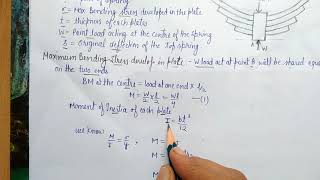 σ = Max Bending stress developed in the plate
t = thickness of each plates
W = Point load acting at the centre of the spring
δ = original deflection of the top spring
Maximum Bending stress develop in plate - W load act at point B will be shared equally
on the two ends
BM at the centre = load at one end × l/2
M = W/2 × l/2 = Wl/4 —(1)
Moment of Inertia of each plate
I = bt³/12
we know M/I = σ/y, M =
M =